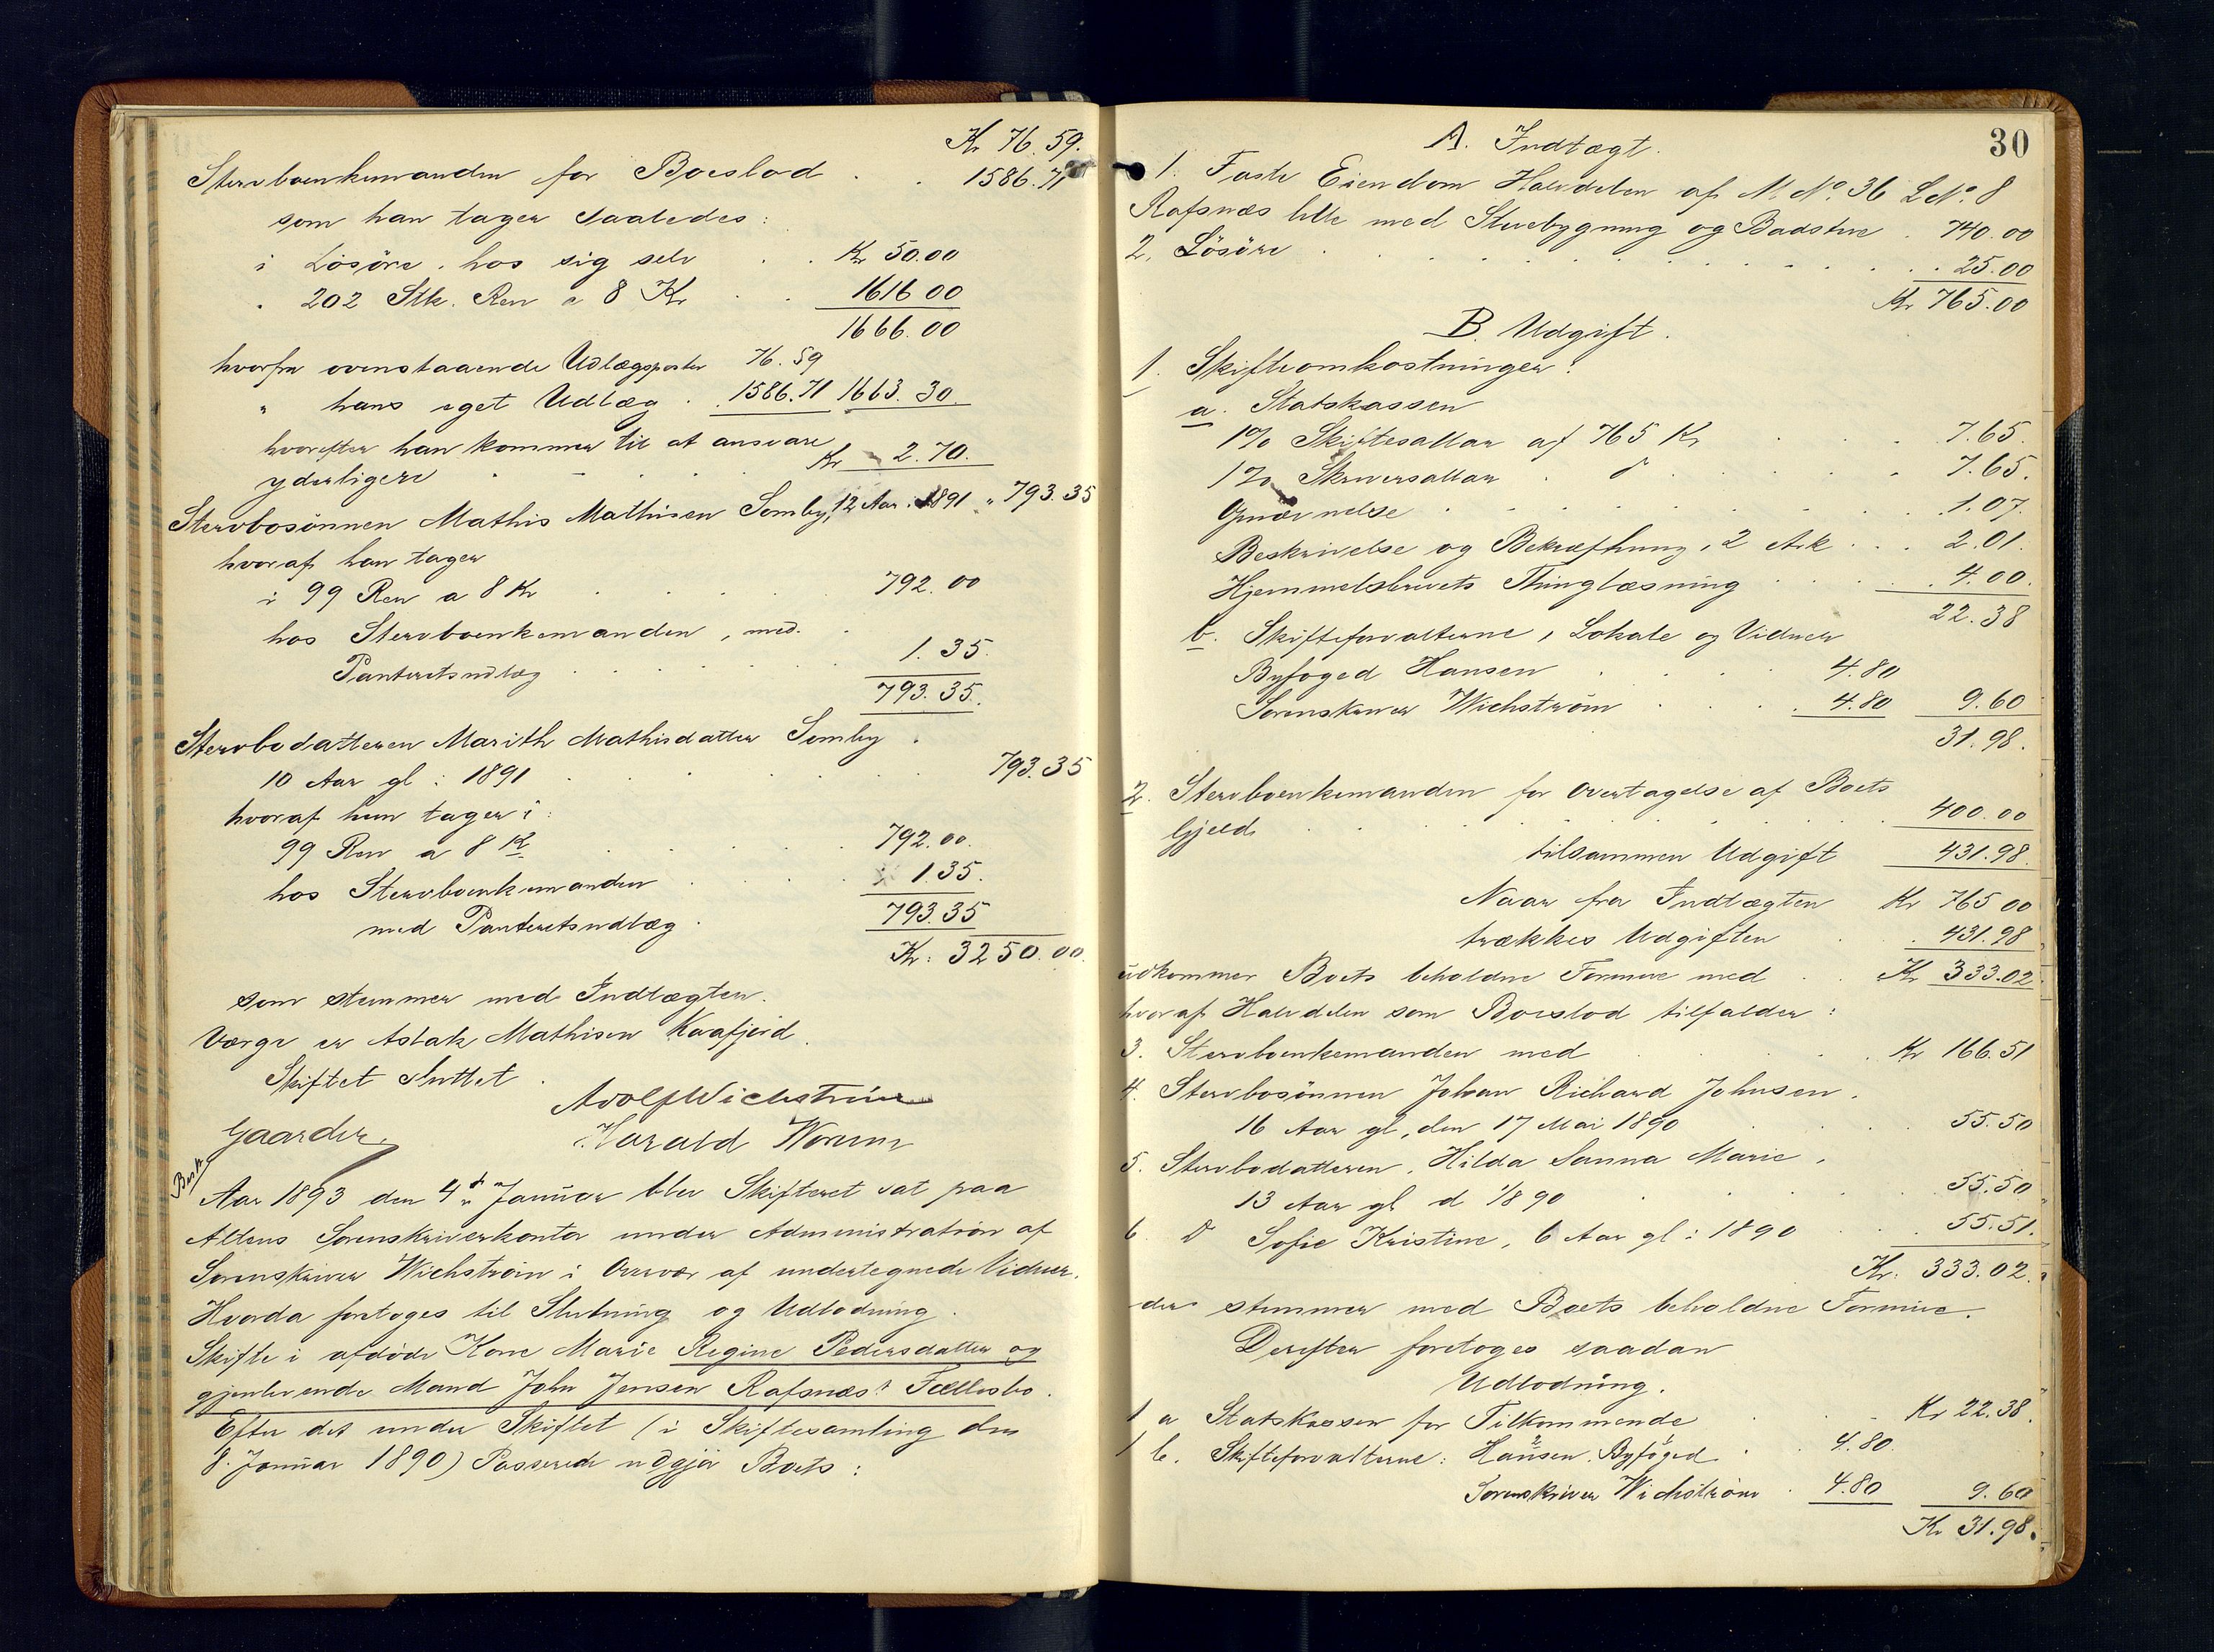 Kr 76.59.
Stervboenkemanden for Boeslod . . 1586.71
som han tager saaledes:
i Lösöre hos sig selv . . Kr 50.00
" 202 Stk. Ren a 8 Kr . . 1616 00
1666.00
hvorfra ovenstaaende Udlægsposter 76.59
" hans eget Udlæg . 1586.71 1663.30
hvorefter han kommer til at ansvare
yderligere . . Kr 2.70.
Stervbosönnen Mathis Mathisen Somby, 12 Aar i 1891 " 793.35
hvoraf han tager
i 99 Ren a 8 Kr . . . 792.00
hos Stervboenkemanden, med
Panteretsudlæg . . . 1.35.
793.35.
Stervbodatteren Marith Mathisdatter Somby .
10 Aar gl: 1891 . . . 793.35
hvoraf hun tager i:
99 Ren a 8 Kr . . . 792.00.
hos Stervboenkemanden . . . 1.35.
med Panteretsudlæg . 793.35
Kr: 3250.00.
som stemmer med Indtægten.
Værge er Aslak Mathisen Kaafjord.
Skiftet sluttet.
Adolf Wichström
Gaarder. Harald Worum
Besk
Aar 1893 den 4de Januar blev Skifteret sat paa
Altens Sorenskriverkontor under Administration af
Sorenskriver Wichström i Overvær af undertegnede Vidner.
Hvorda foretoges til Slutning og Udlodning
Skifte i afdöde Kone Marie Regine Pedersdatter og
gjenlevende Mand John Jensen Rafsnæs's Fællesbo.
Efter det under Skiftet (i Skiftesamling den
8. Januar 1890) Passerede udgjör Boets:
30
A. Indtægt.
1. Faste Eiendom Halvdelen af M.No. 36 LNo. 8
Rafsnæs lille med Stuebygning og Badstue . 740.00
2. Lösöre . . . 25.00
Kr 765.00
B. Udgift.
1. Skifteomkostninger:
a. Statskassen
1% Skiftesallar af 765 Kr . . 7.65.
1% Skriversallar . d . . 7.65.
. . . 1.07.
Beskrivelse og Bekræftning, 2 Ark . . . 2.01.
Hjemmelsbrevets Thinglæsning . . . 4.00.
22.38
b. Skifteforvalterne, Lokale og Vidner
Byfoged Hansen . . . 4.80
Sorenskriver Wichström . . . 4.80 9.60
31.98.
2. Stervboenkemanden for Overtagelse af Boets
Gjeld . . . 400.00
tilsammen Udgift 431.98.
Naar fra Indtægten Kr 765 00
trækkes Udgiften . . 431.98
udkommer Boets beholdne Formue med . Kr 333.02.
hvoraf Halvdelen som Boeslod tilfalder:
3. Stervboenkemanden med . . . Kr 166.51
4. Stervbosönnen Johan Richard Johnsen.
16 Aar gl, den 17 Mai 1890 . . . 55.50
5. Stervbodatteren, Hilda Sanna Marie,
13 Aar gl d 1/8 90 . . . 55.50
6. D Sofie Kristine, 6 Aar gl: 1890 . . 55.51.
Kr: 333.02.
der stemmer med Boets beholdne Formue.
Derefter foretoges saadan
Udlodning.
1 a Statskassen for Tilkommende . . . Kr 22.38.
1 b. Skifteforvalterne: Hansen Byfoged . . 4.80.
Sorenskriver Wichström . 4.80 9.60
Kr 31.98.